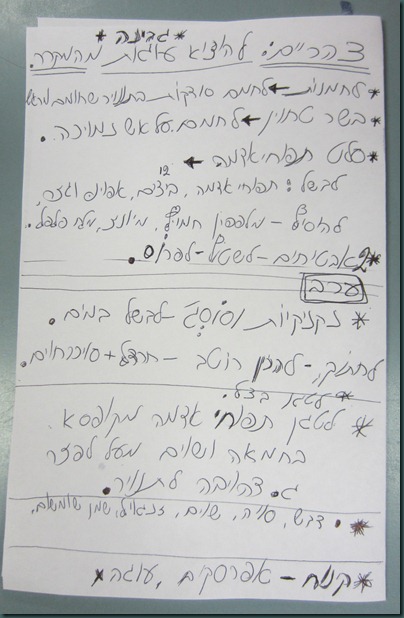 *גבינה*
צהריים: להוציא עוגת מהמקרר.
* לחמניות ← לחמם סודקות בתנור שחומם מראש
* בשר טחון ← לחמם על אש נמוכה.
* סלט תפוחי אדמה ←
לבשל: תפוחי אדמה, 12 ביצים, אפונה וגזר,
להוסיף - מלפפון חמוץ, מיונז, מלח פלפל.
* 2 אבטיחים - לשטוף - לפרוס.
ערב
* נקניקיות וסוסג' - לבשל במים.
לחתוך, - להכין רוטב - חרדל + סויכרחים.
* לטגן בצל.
* לטגן תפוחי אדמה מקופסא.
בחמאה ושום מעל לפזר
ג. צהובה לתנור.
* דבש, סויה, שום, שמן שומשום,
* קינוח - אפרסקים, עוגה